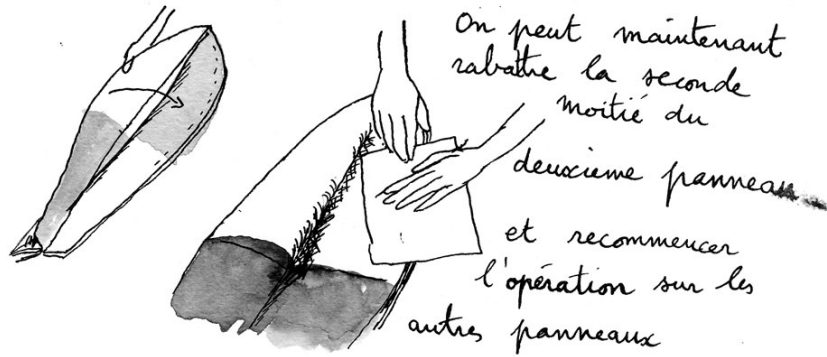 On peut maintenant
rabattre la seconde
moitié du
deuxième panneau
et recommencer
l'opération sur les
autres panneaux